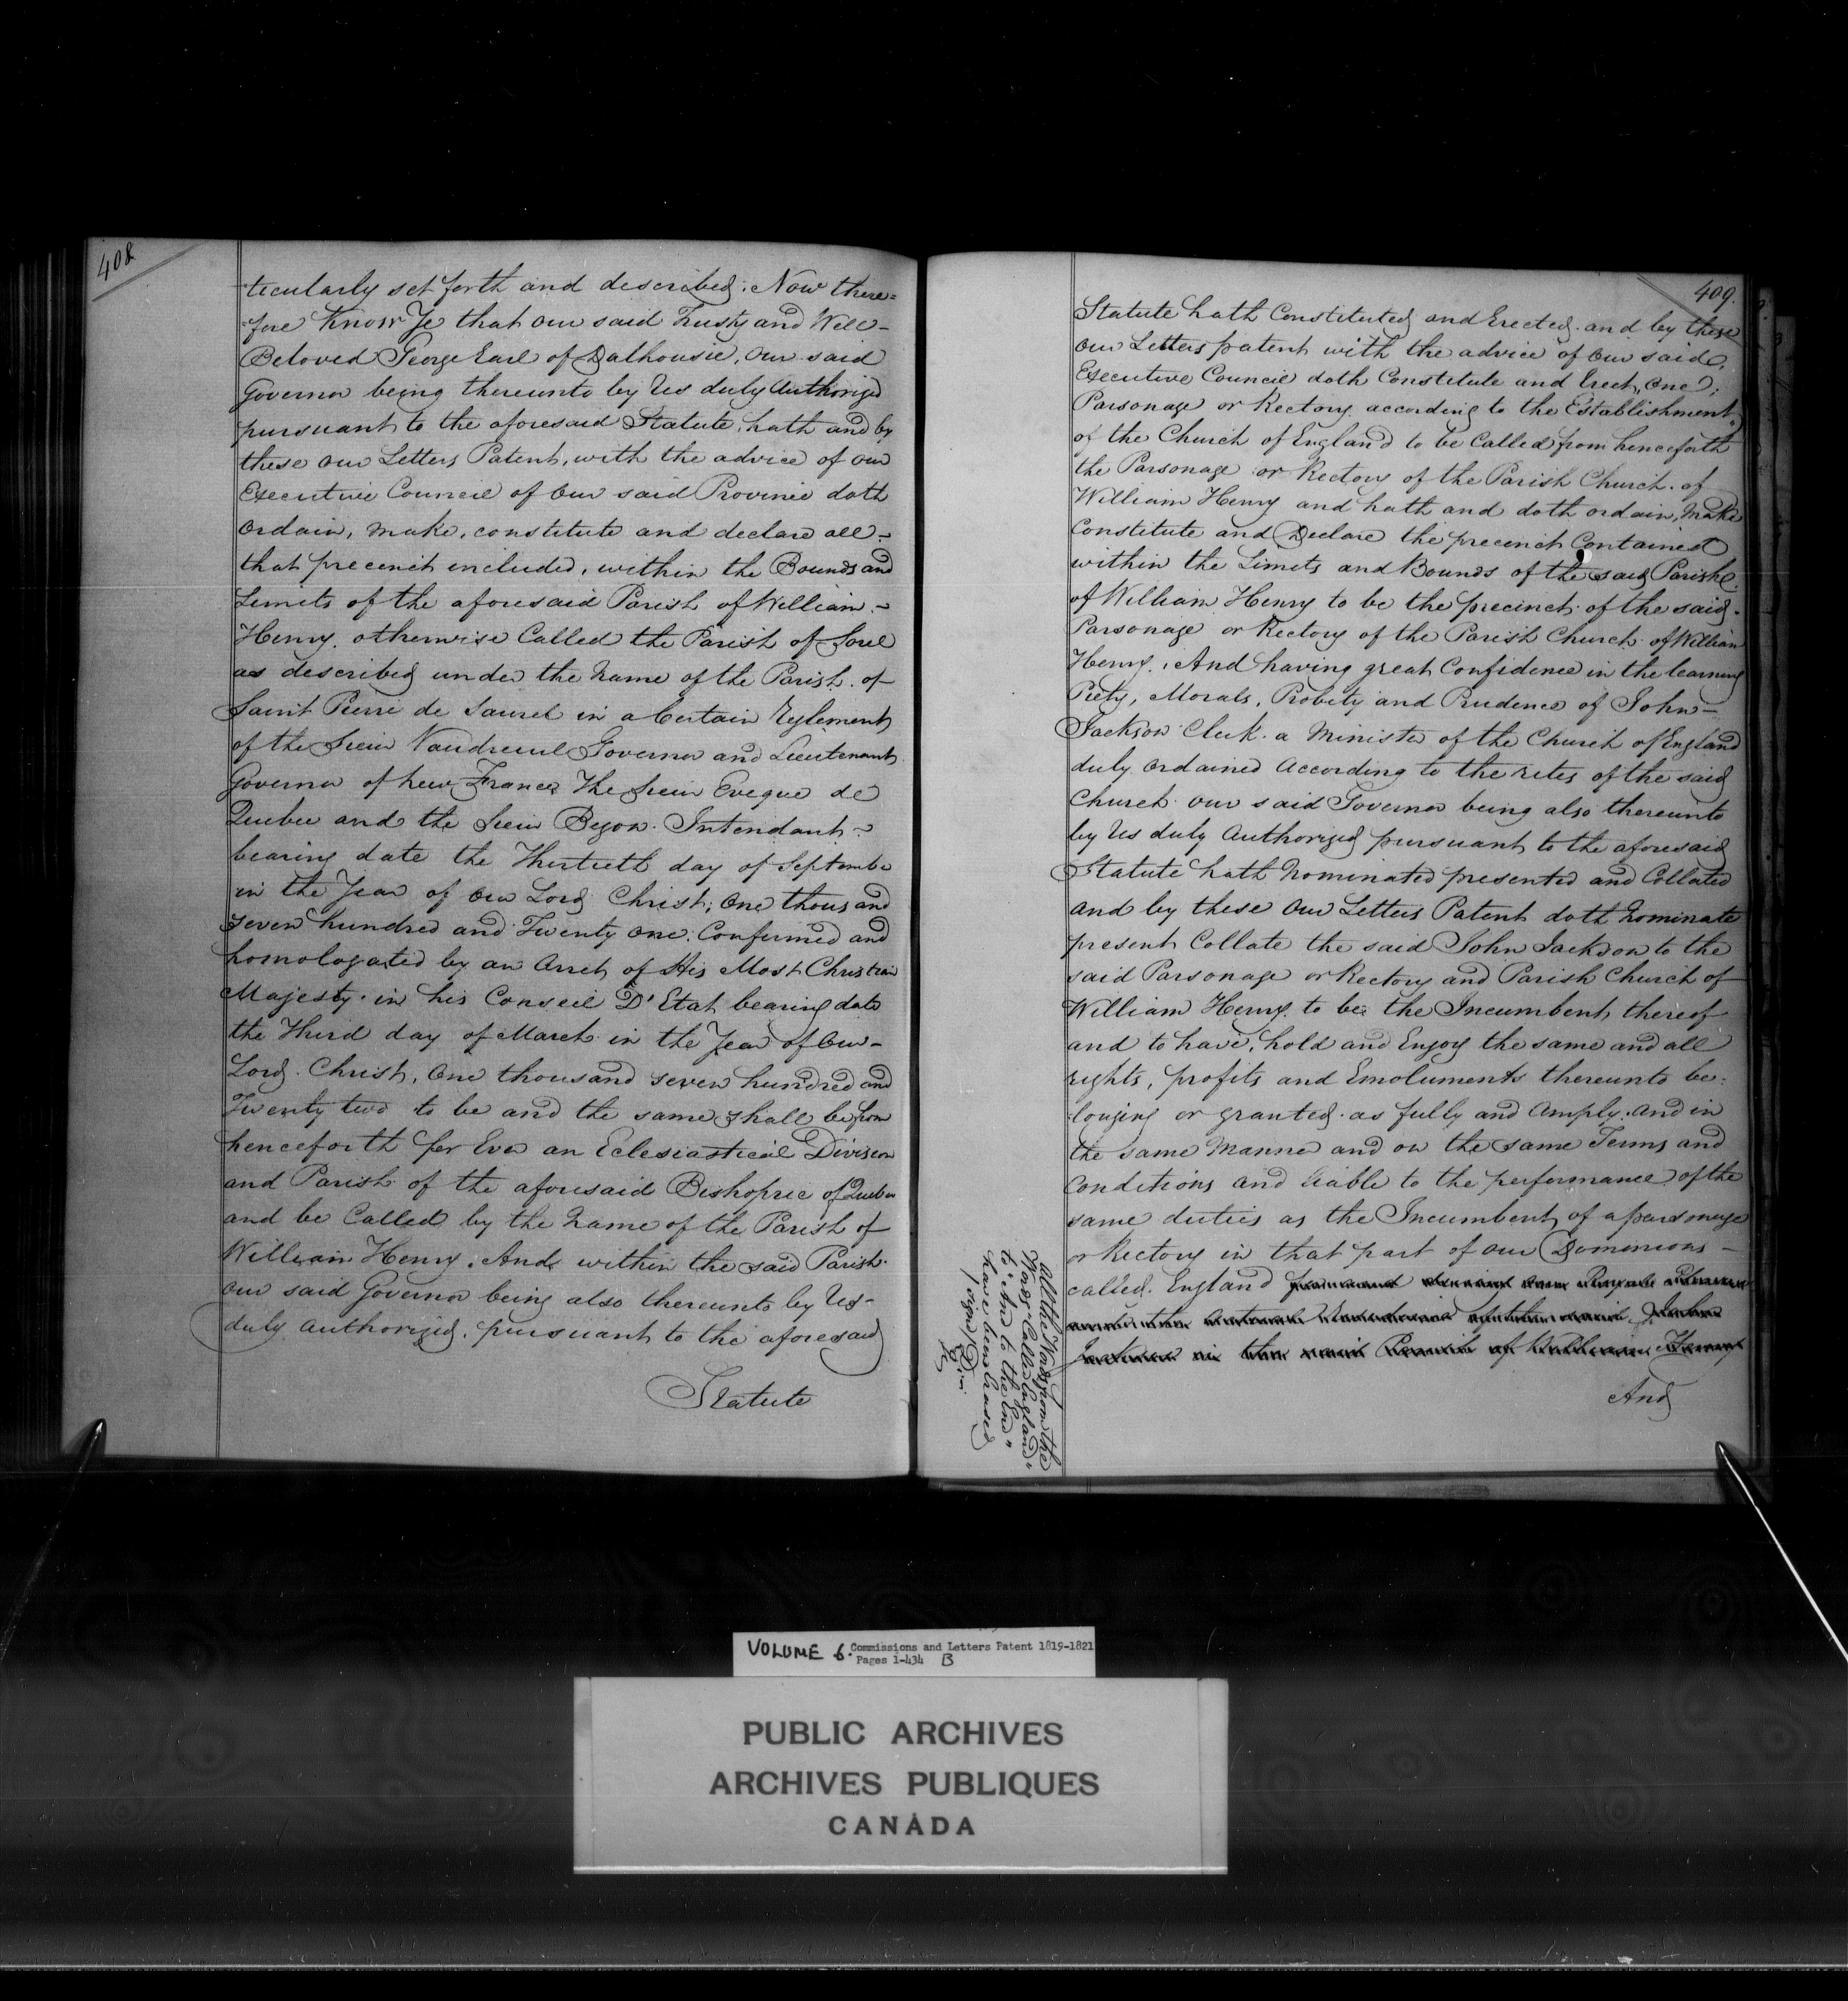 408
ticularly set forth and described; Now there=
=fore Know Ye that our said Trusty and Well-
Beloved George Earl of Dalhousie, our said
Governor being thereunto by Us duly Authorized
pursuant to the aforesaid Statute, hath and by
these our Letters Patent, with the advice of our
Executive Council of our said Province doth
ordain, make, constitute and declare all-
that precinct included, within the Bounds and
Limits of the aforesaid Parish of William-
Henry, otherwise Called the Parish of Sorel
as described under the Name of the Parish of
Saint Pierre de Saurel in a Certain Reglement
of the Sieur Vaudreuil Governor and Lieutenant
Governor of New France The Sieur Eveque de
Quebec and the Sieur Begon Intendant-
bearing date the Thirtieth day of September
in the Year of our Lord Christ, One thousand
seven hundred and Twenty one, Confirmed and
homologated by an Arret of His Most Christian
Majesty in his Conseil D'Etat bearing date
the Third day of March in the Year of Our-
Lord Christ, One thousand seven hundred and
Twenty two to be and the same shall be from
henceforth for Ever an Eclesiastical Division
and Parish of the aforesaid Bishopric of Quebec
and be Called by the Name of the Parish of
William Henry. And within the said Parish
our said Governor being also thereunto by Us-
duly authorized, pursuant to the aforesaid
Statute
409.
Statute hath Constituted and Erected and by these
our Letters patent with the advice of our said
Executive Council doth Constitute and Erect, One
Parsonage or Rectory according to the Establishment
of the Church of England to be Called from henceforth
the Parsonage or Rectory of the Parish Church of
William Henry and hath and doth ordain, Make
Constitute and Declare the precinct Contained
within the Limits and Bounds of the said Parish
of William Henry to be the precinct of the said
Parsonage or Rectory of the Parish Church of William
Henry. And having great Confidence in the learning
Piety, Morals, Probity and Prudence of John-
Jackson Clerk a Minister of the Church of England
duly ordained According to the rites of the said
Church our said Governor being also thereunto
by Us duly Authorized pursuant to the aforesaid
Statute hath Nominated presented and Collated
and by these Our Letters Patent doth Nominate
present Collate the said John Jackson to the
said Parsonage or Rectory and Parish Church of
William Henry to be the Incumbent thereof
and to have, hold and Enjoy the same and all
rights, profits and Emoluments thereunto be=
longing or granted as fully and Amply, and in
the same Manner and on the same Terms and
Conditions and liable to the performance of the
same duties as the Incumbent of a parsonage
or Rectory in that part of our Dominions-
called England during our Royal Pleasure
and the actual Residence of the said John
Jackson in the said Parish of William Henry
And
All the Words from the
Words "Called England"
to "And to the End"
have been Erased
/signed/
VOLUME 6. Commissions and Letters Patent 1819-1821
Pages 1-434 B
PUBLIC ARCHIVES
ARCHIVES PUBLIQUES
CANADA